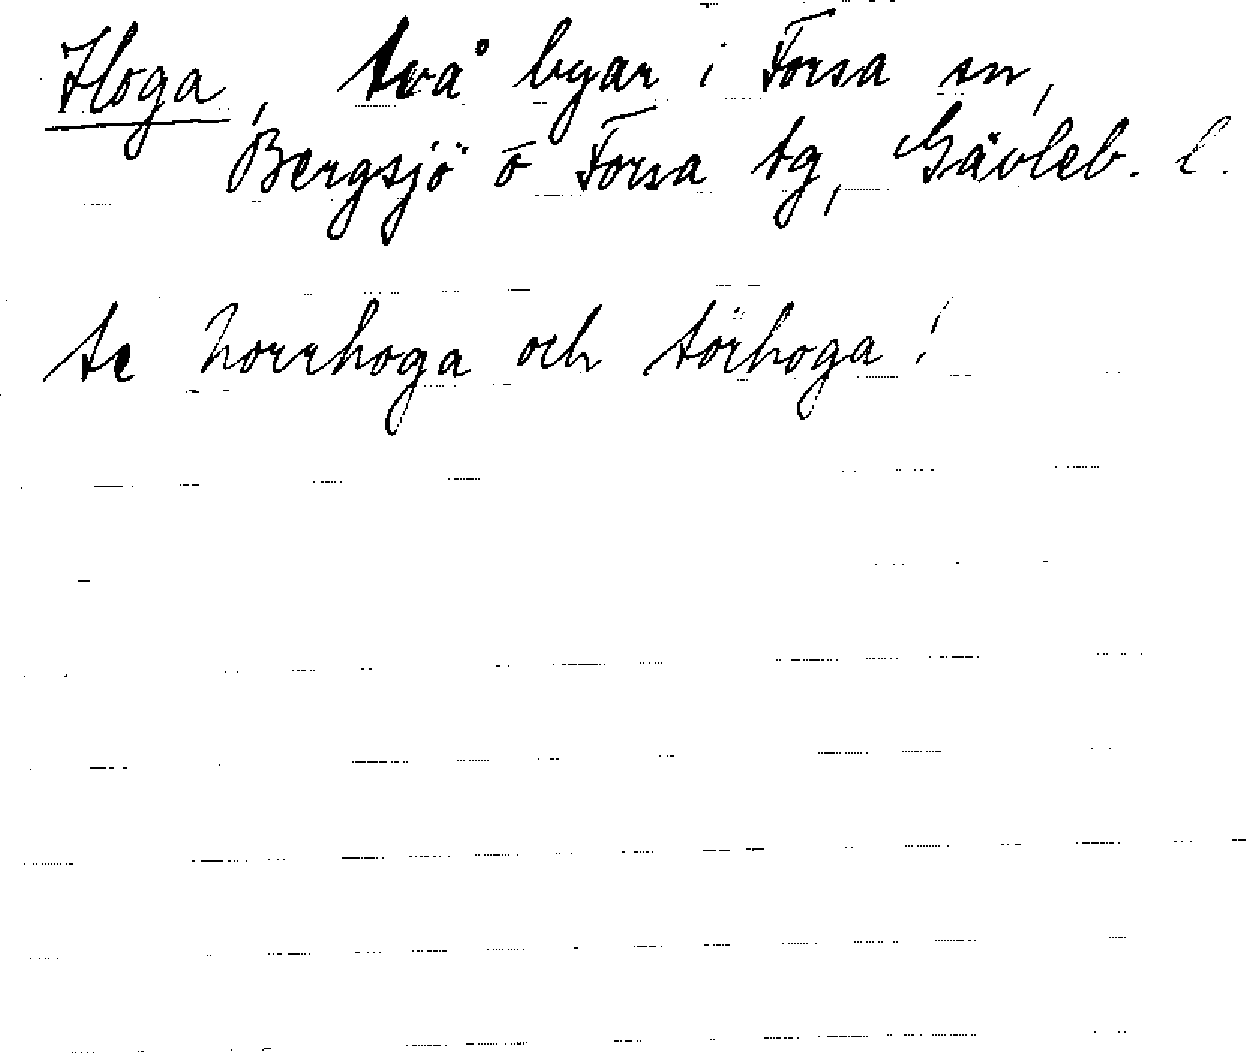 Hoga, två byar i Forsa sn,
Bergsjö o Forsa tg, Gävleb. l.
te norrhoga och sörhoga!